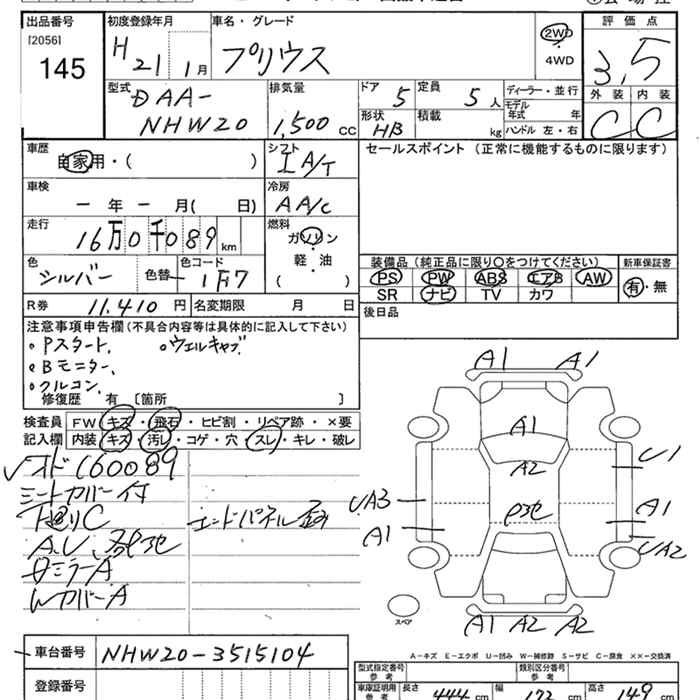 出品番号
[2056]
145
初度登録年月
H 21 1月
車名・グレード
プリウス
2WD
・
4WD
評価点
3,5
外装 内装
C C
型式
DAA-
NHW20
排気量
1,500 CC
ドア 5
形状 HB
定員 5人
積載 kg
ディーラー・並行
モデル年式 年
ハンドル 左・右
車歴
自家用・( )
シフト
I A/T
セールスポイント (正常に機能するものに限ります)
車検
ー年ー月( 日)
冷房
AA/C
走行
16万0千089km
燃料
ガソリン
軽・油
( )
色
シルバー
色替
色コード
1F7
装備品 (純正品に限り〇をつけてください)
新車保証書
PS PW ABS エアB AW
有・無
SR ナビ TV カワ
R券 11.410 円
名変期限 月 日
後日品
注意事項申告欄(不具合内容等は具体的に記入して下さい)
・Pスタート、 ・ウェルキャブ
・Bモニター、
・クルコン、
修復歴 有 〔箇所 〕
検査員
記入欄
FW キズ・飛石・ヒビ割・リペア跡・×要
内装 キズ・汚レ・コゲ・穴・スレ・キレ・破レ
オド160089
シートカバー付
下廻りC
A.U
エンドパネル
ミラーA
WカバーA
A1 A1
A1
A2
U1
UA3
A1
A1
UA2
スペア
A1 A2 A2
A-キズ E-エクボ U-凹み W-補修跡 S-サビ C-腐食 ××-交換済
車台番号 NHW20-3515104
登録番号
型式指定番号
参考
類別区分番号
参考
車庫証明用
参考
長さ 444 cm
幅 172 cm
高さ 149 cm